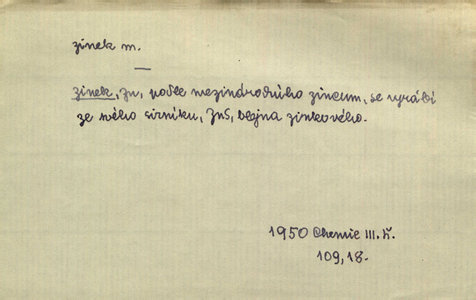 zinek m.
zinek, Zn, podle mezinárodního zincum, se vyrábí
ze svého sirníku, ZnS, blejna zinkového.
1950 Chemie III. tř.
109, 18.